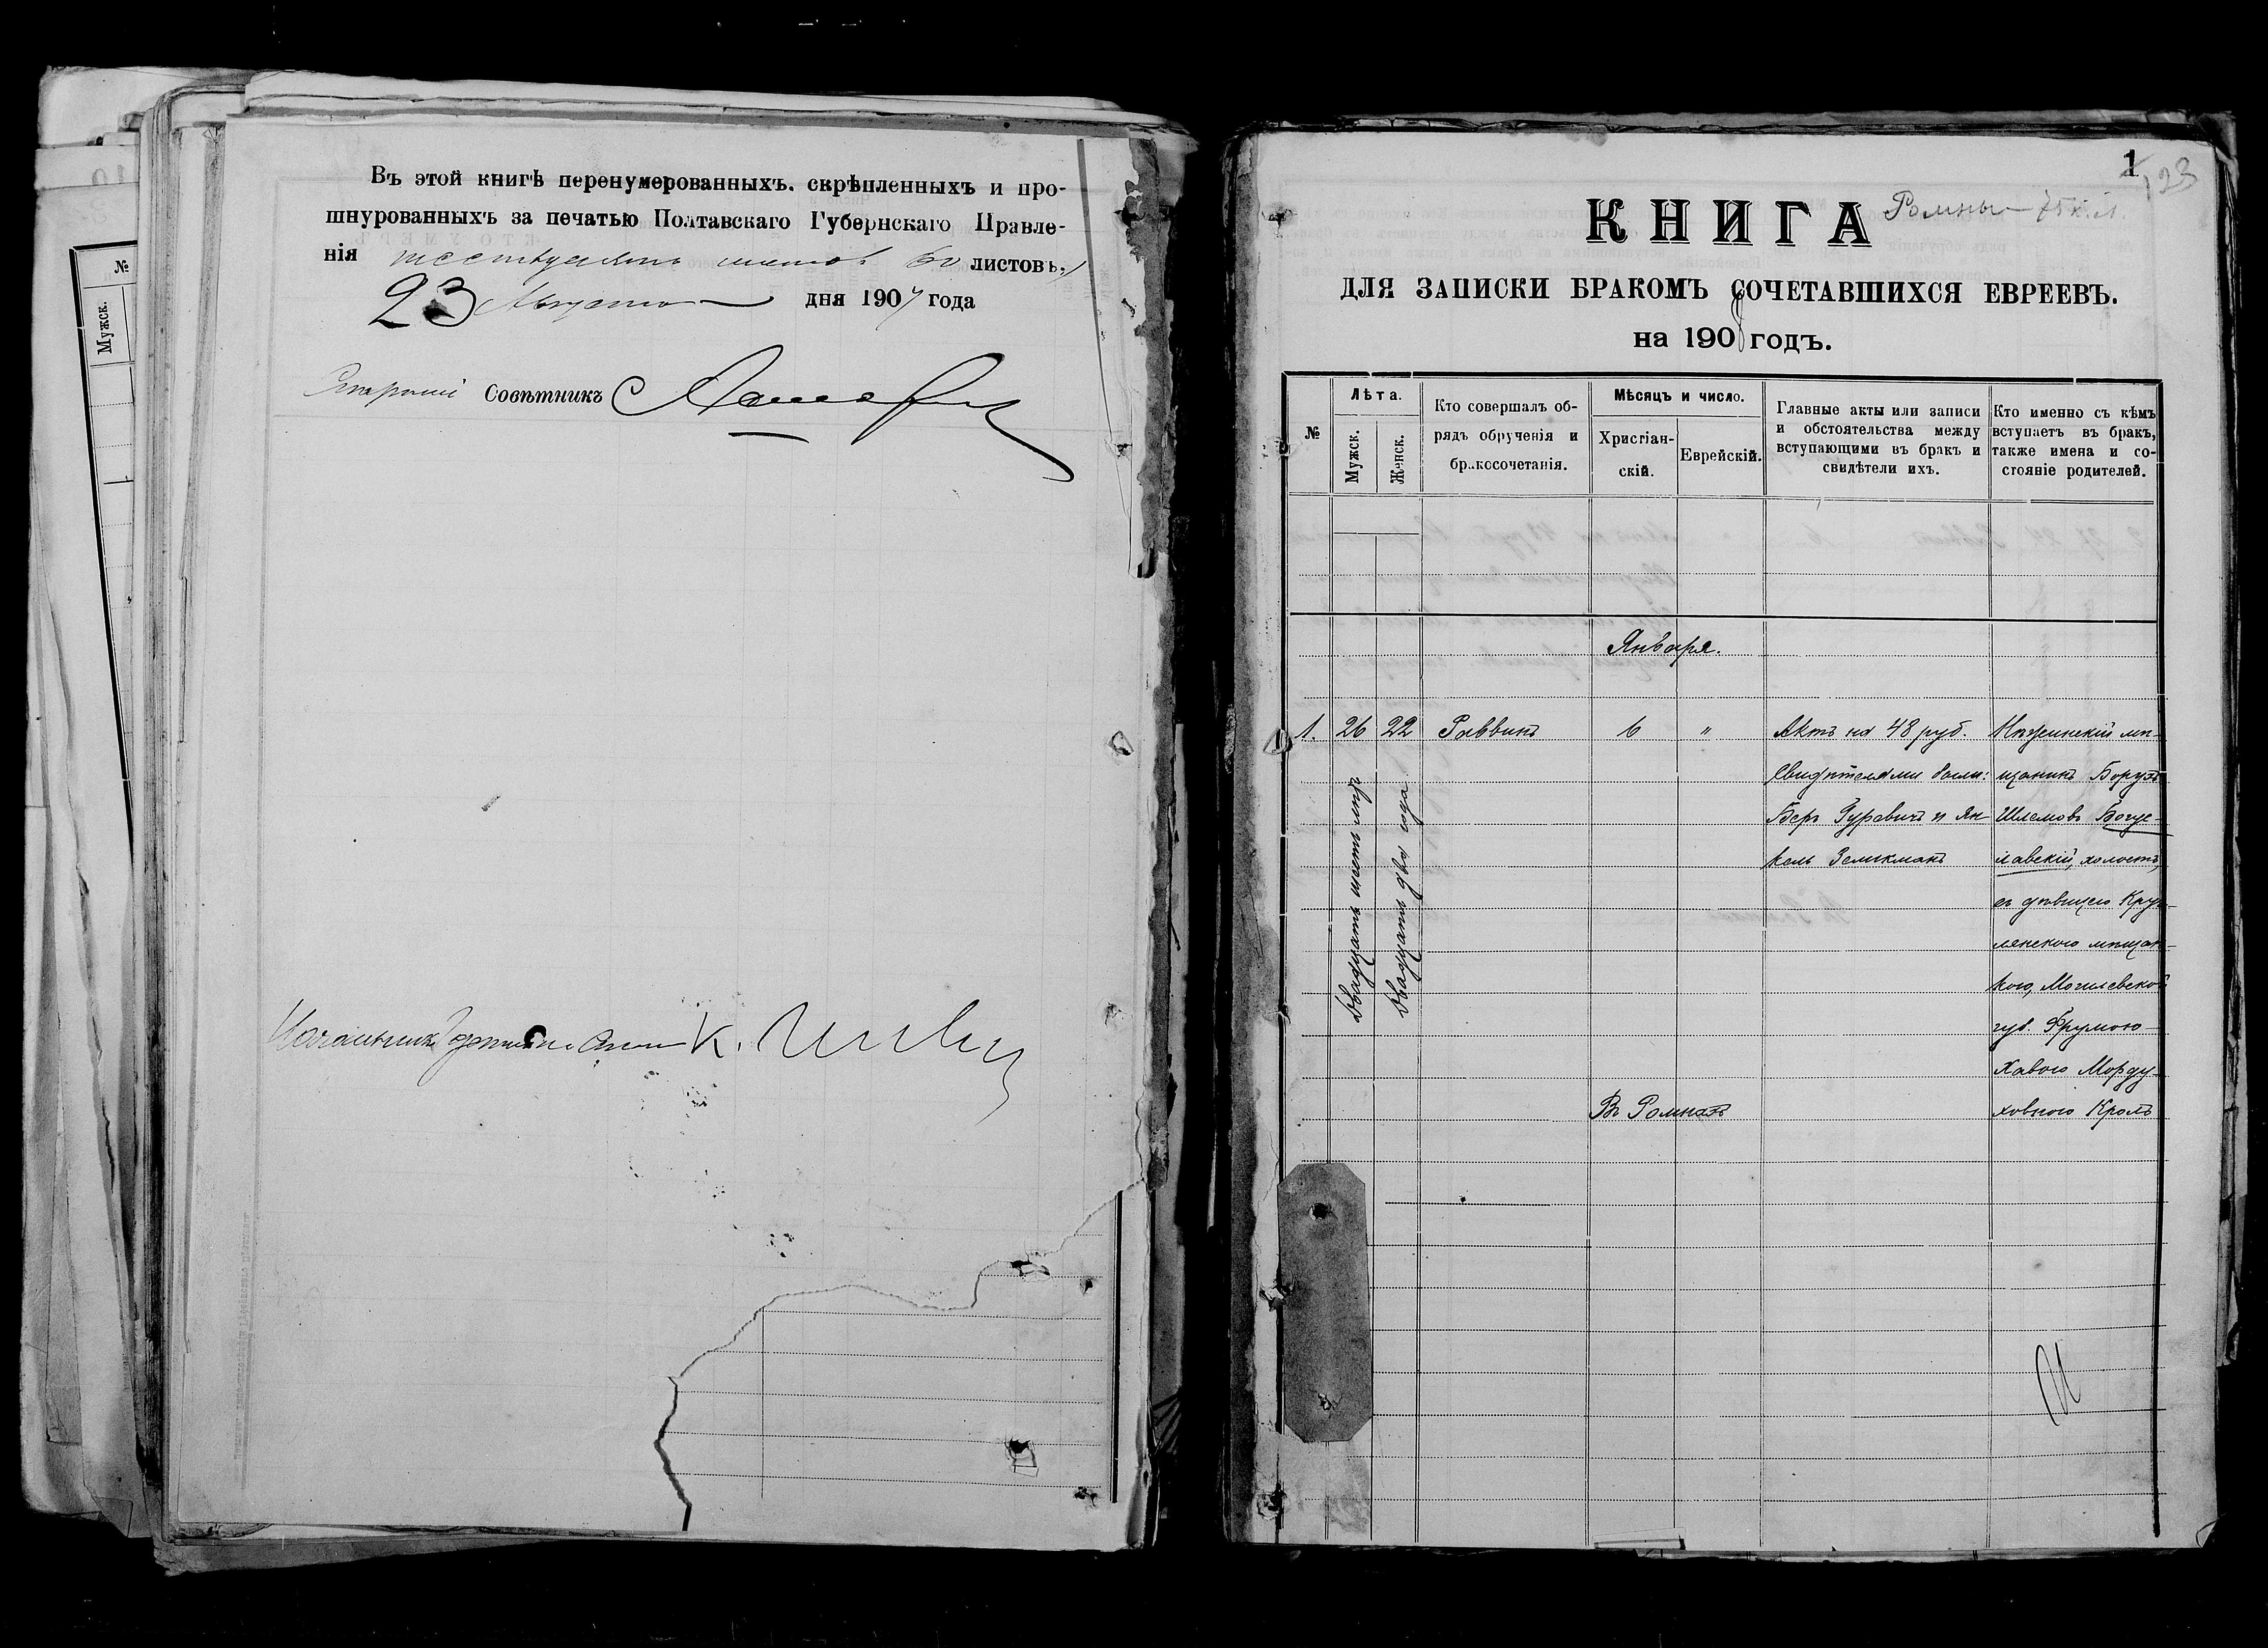 Въ этой книгѣ перенумерованныхъ. скрѣпленныхъ и про-
шнурованныхъ за печатью Полтавскаго Губернскаго Правле-
нія шестьдесятъ 60 листовъ.
23 Августа дня 1907 года
Старшій Совѣтникъ
К.
№
Мужск.
1
123
Ромны
КНИГА
ДЛЯ ЗАПИСКИ БРАКОМЪ СОЧЕТАВШИХСЯ ЕВРЕЕВЪ.
на 1908 годъ.
№
Лѣта.
Мужск.
Женск.
Кто совершалъ об-
рядъ обрученія и
бракосочетанія.
Мѣсяцъ и число.
Христіан-
скій.
Еврейскій.
Главные акты или записи
и обстоятельства между
вступающими въ бракъ и
свидѣтели ихъ.
Кто именно съ кѣмъ
вступаетъ въ бракъ,
также имена и со-
стояніе родителей.
Января.
1.
26
22
Двадцать шесть лѣтъ
Двадцать два года
Раввинъ
6
"
Актъ на 48 руб.
Свидѣтелями были:
Беръ Гуревичъ и Ян-
кель Зеликманъ
Нѣжинскій мѣ-
щанинъ Борухъ
Шлемовъ Богус-
лавскій, холостъ,
съ дѣвицею Круг-
лянскою мѣщан-
кою, Могилевской
губ. Фрумою-
Хавою Морду-
ховною Кролъ
Въ Ромнахъ